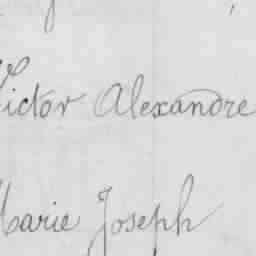 Victor Alexandre
Marie Joseph